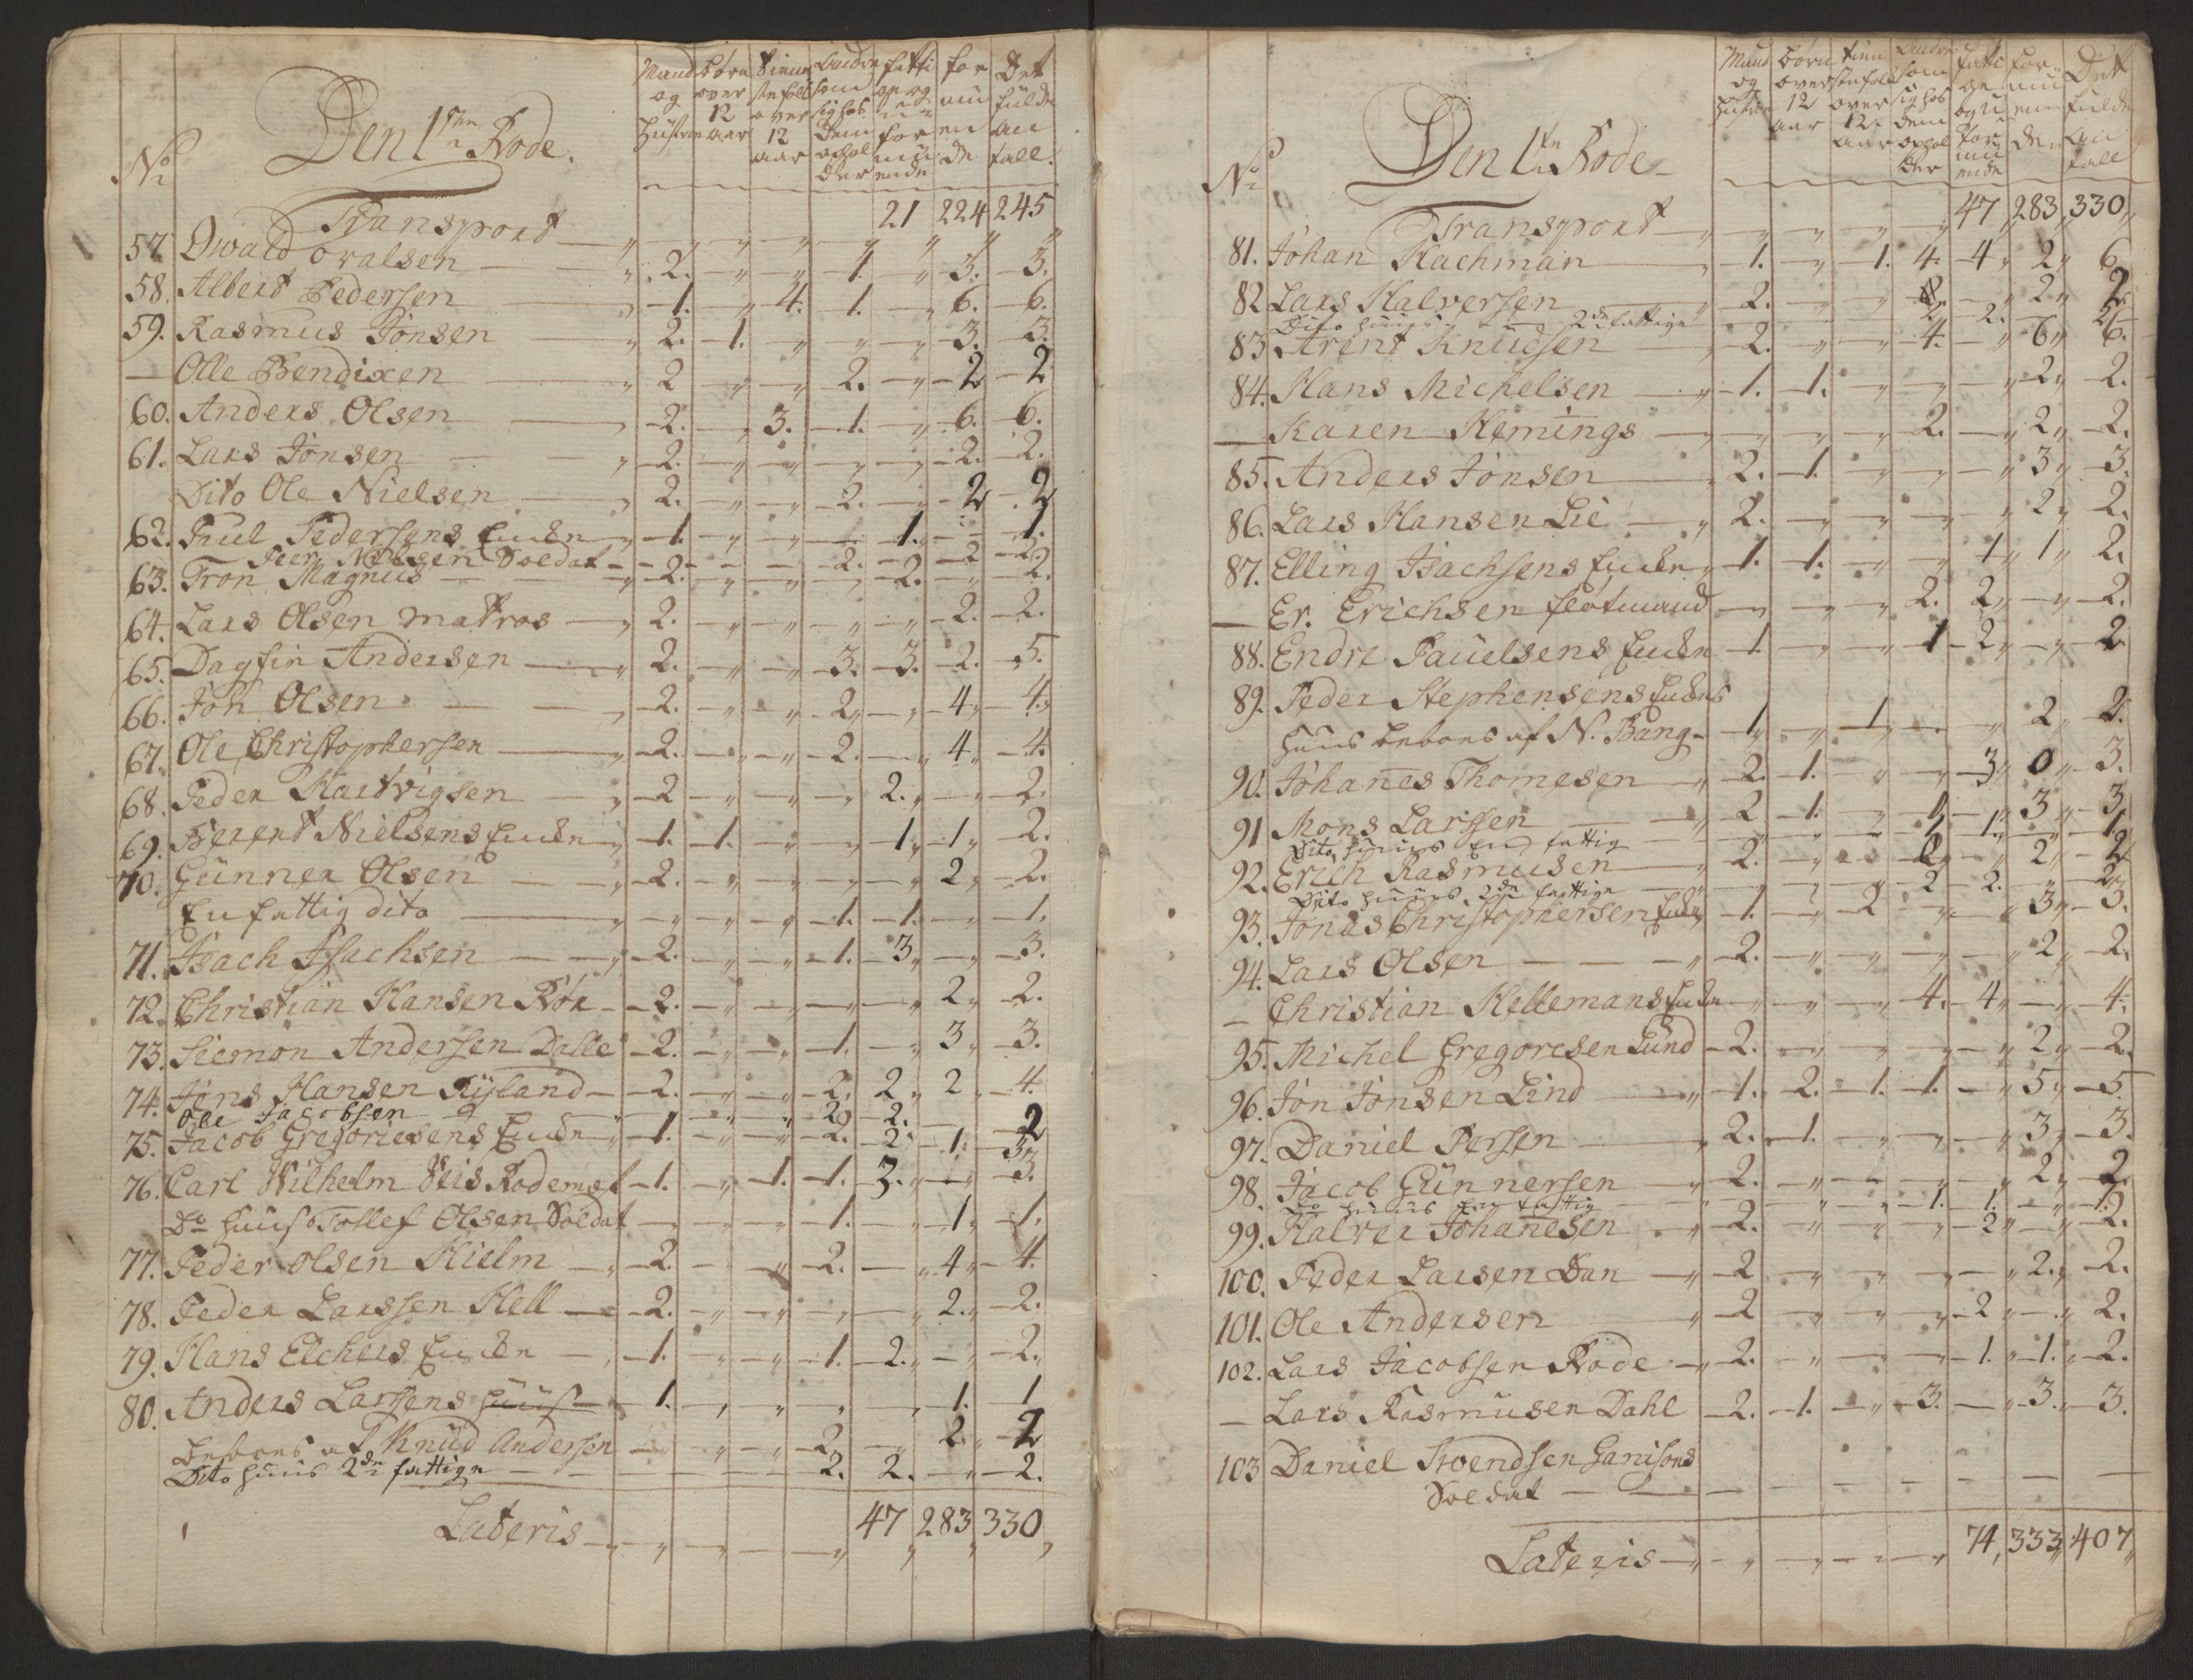 No
Den 1ste Rode.
Mand og hustru
børn over 12 aar
tiennestefolk over 12 aar
Andre som sig hos dem opholder
fattige og uformuende
formuende
Det fulde antall
Transport — — — — 21 224 245
57. Owald Ovalsen — 2. " " 1. " 3. 3.
58. Albert Pedersen — 1. " 4. 1. " 6. 6.
59. Rasmus Jonsen — 2. 1. " " " 3. 3.
— Olle Bendixen — 2 " " 2. " 2 2
60. Anders Olsen — 2. " 3. 1. " 6. 6.
61. Lars Jonsen — 2. " " " " 2. 2.
Dito Ole Nielsen — 2. " " 2. " 2 2
62. Poul Pedersens Encke — 1. " " — 1. — 1.
Peer Nielsen Soldat — — — 2. — 2 2.
63. Tron Magnus — 2. " " " 2. " 2.
64. Lars Olsen matros — 2. " " " " 2. 2.
65. Dagfin Andersen — 2. " " 3. 3. 2. 5.
66. Joh Olsen — 2. " " 2. " 4. 4.
67. Ole Christophersen — 2. " " 2. " 4. 4.
68. Peder Hartvigsen — 2 " " " 2. " 2.
69. Berent Nielsens Encke — 1. 1. " " 1. 1. 2.
70. Günner Olsen — 2. " " " " 2. 2.
En fattig dito — " " " 1. 1. " 1.
71. Isach Isachsen — 2. " " 1. 3. " 3.
72. Christian Hansen Rör — 2. " " " " 2. 2.
73. Siemon Andersen Dalle — 2. " " 1. " 3. 3.
74. Jens Hansen Rÿland — 2. " " 2. 2. 2. 4.
Ole Jacobsen — " " " 2. 2. — 2
75. Jacob Gregoriesens Encke — 1. " " 2. 2. 1. 3.
76. Carl Wilhelm Veis Rodemest — 1. " 1. 1. 3. " 3.
Do huus Tollef Olsen Soldat — " " " 1. " 1. 1.
77. Peder Olsen Hielm — 2. " " 2. " 4. 4.
78. Peder Larssen Hell — 2. " " " " 2. 2.
79. Hans Elchers Encke — 1. " " 1. 2. " 2.
80. Anders Larssens huus — 1. " " " " 1. 1
beboes af Knud Andersen — " " " 2. " 2. 2
Dito huus 2de fattige — — — 2. 2. — 2.
Lateris — — — — 47 283 330
No
Den 1te Rode
Mand og hustru
børn over 12 aar
tiennestefolk over 12 aar
Andre som sig hos dem opholder
fattige og uformuende
formuende
Det fulde antall
Transport — — — — 47, 283, 330,
81. Johan Rachman — 1. " 1. 4. 4. 2. 6
82 Lars Halversen — 2. " " " " 2. 2.
Dito huus 2de fattige — 2. 2. " 2
83 Arent Knudsen — 2. " " 4. " 6. 6.
84. Hans Michelsen — 1. 1. " " " 2. 2.
— Karen Hemings — " " " 2. " 2. 2.
85. Anders Jonsen — 2. 1. " " " 3. 3.
86. Lars Hansen Lie — 2. " " " " 2. 2.
87. Elling Isachsens Encke — 1. 1. " " 1. 1. 2.
— Er. Erichsen flötmand — " " " 2. 2. " 2.
88. Endre Pauelsens Encke — 1. " " 1 2. " 2
89. Peder Stephensens Enckes
huus beboes af N. Bang — 1. " 1. " " 2. 2.
90. Johanes Thomesen — 2. 1. " " 3. 0. 3.
91 Mons Larssen — 2 1. " " " 3. 3.
Dito huus En fattig — " " " 1. 1. " 1.
92. Erich Rasmusen — 2. " " " " 2. 2
Dito huus 2de fattige — " " " 2 2. " 2
93. Jonas Christophersen Encke — 1. " 2 " " 3. 3.
94. Lars Olsen — 2. " " " " 2. 2.
— Christian Hellemans Encke " " " 4. 4. " 4.
95. Michel Gregoresen Lund — 2. " " " " 2. 2.
96. Jon Jonsen Lind — 1. 2. 1. 1. " 5. 5.
97. Daniel Persen — 2. 1. " " " 3. 3.
98. Jacob Günnersen — 2. " " " " 2. 2.
Do huus En fattig — " " " 1. 1. " 1.
99. Halver Johanesen — 2. " " " 2. " 2.
100. Peder Larsen Dan — 2 " " " " 2. 2.
101. Ole Andersen — 2 " " " 2 " 2.
102. Lars Jacobsen Rode — 2. " " " 1. 1. 2.
— Lars Rasmusen Dahl — 2. 1. " 3. " 3. 3.
103 Daniel Svendsen Garnisons
Soldat — — — — — — —
Lateris — — — — 74, 333, 407,